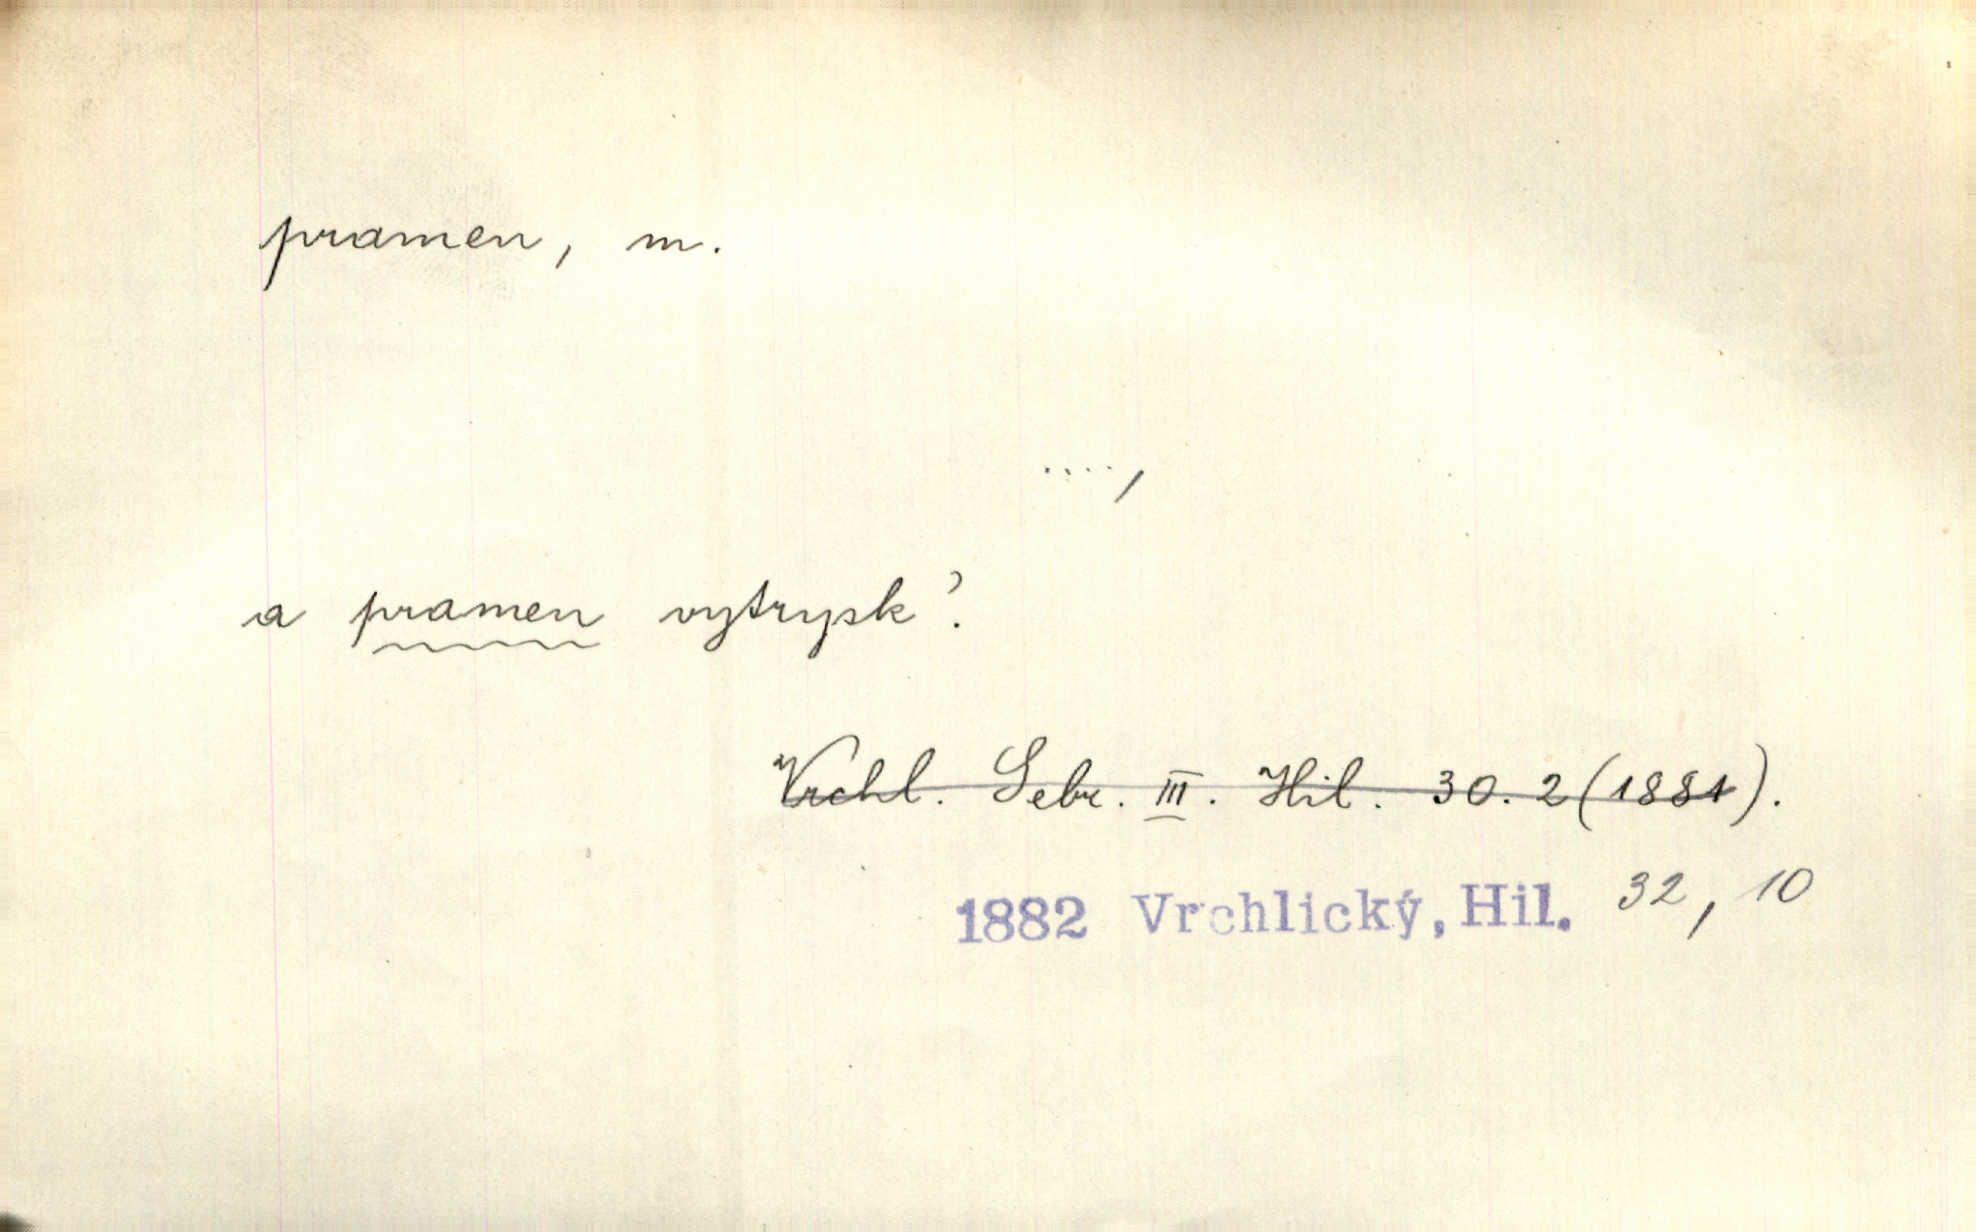 pramen, m.
....,
a pramen vytrysk?
Vrchl. Sebr. III. Hil. 30. 2 (1881).
1882 Vrchlický, Hil. 32, 10